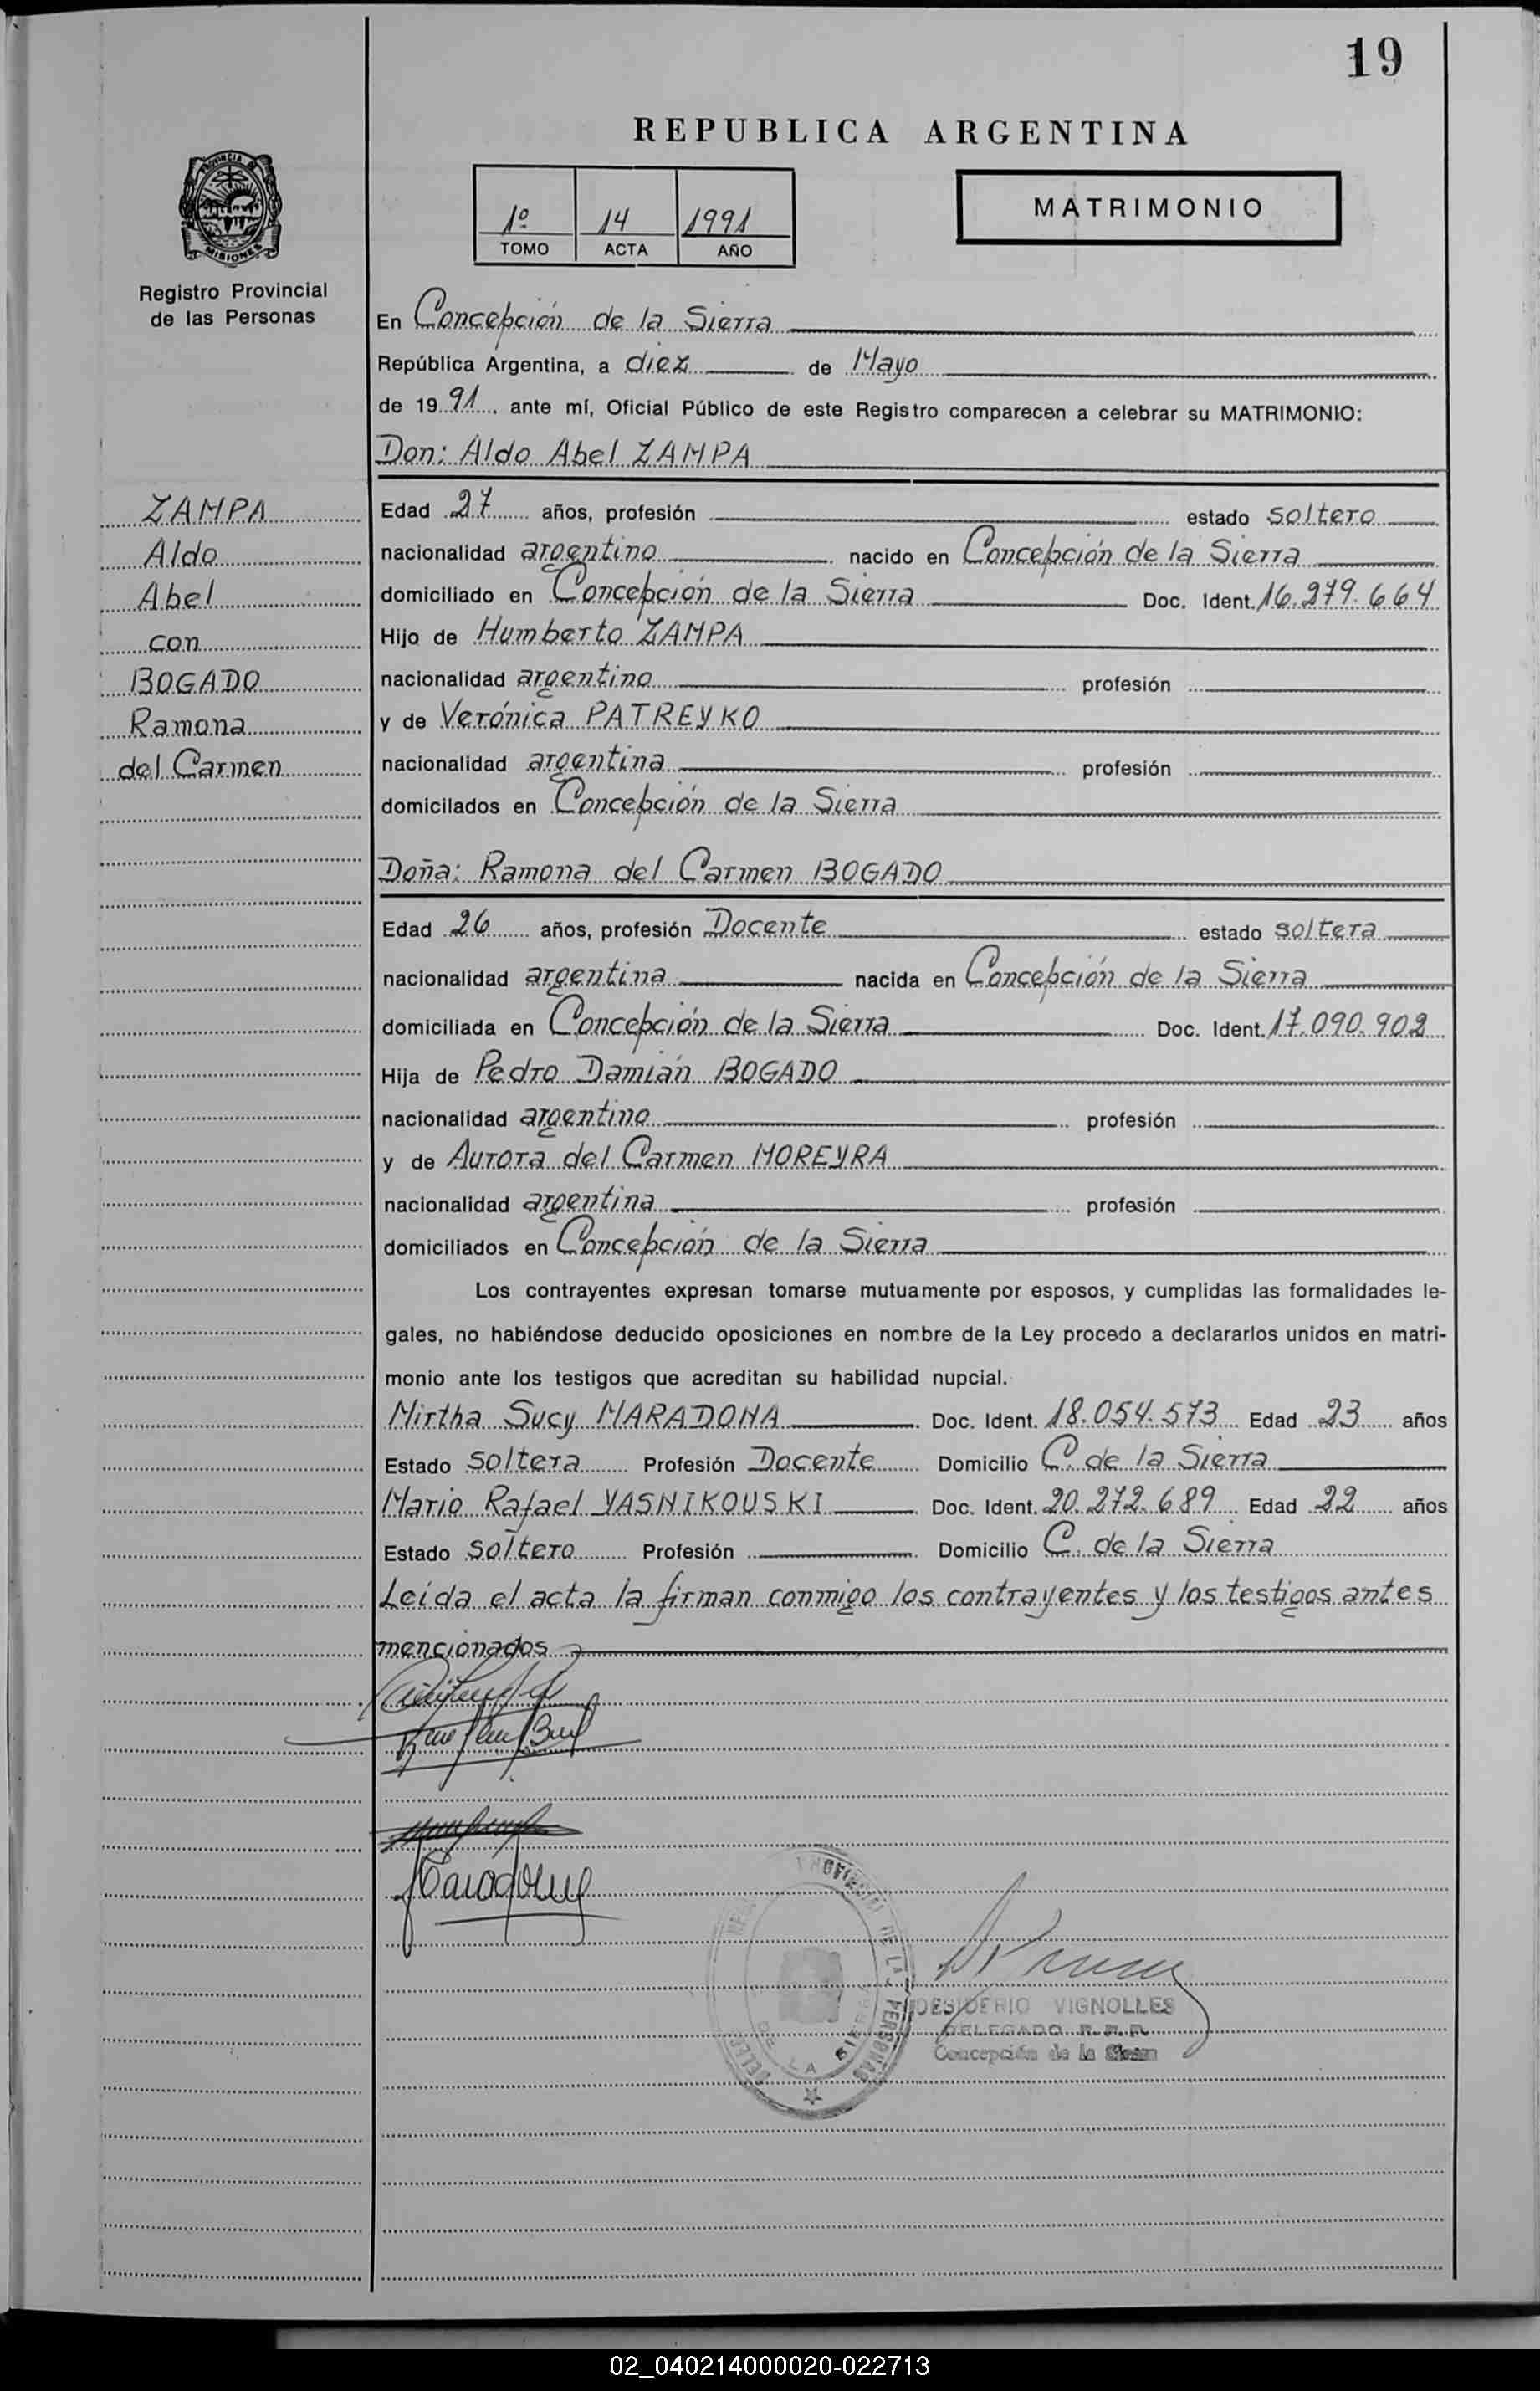 19
REPUBLICA ARGENTINA
PROVINCIA DE
MISIONES
Registro Provincial
de las Personas
1º 14 1991
TOMO ACTA AÑO
MATRIMONIO
En Concepción de la Sierra
República Argentina, a diez de Mayo
de 1991, ante mí, Oficial Público de este Registro comparecen a celebrar su MATRIMONIO:
Don: Aldo Abel ZAMPA
ZAMPA
Aldo
Abel
con
BOGADO
Ramona
del Carmen
Edad 27 años, profesión estado soltero
nacionalidad argentino nacido en Concepción de la Sierra
domiciliado en Concepción de la Sierra Doc. Ident. 16.279.664
Hijo de Humberto ZAMPA
nacionalidad argentino profesión
y de Verónica PATREYKO
nacionalidad argentina profesión
domicilados en Concepción de la Sierra
Doña: Ramona del Carmen BOGADO
Edad 26 años, profesión Docente estado soltera
nacionalidad argentina nacida en Concepción de la Sierra
domiciliada en Concepción de la Sierra Doc. Ident. 17.090.902
Hija de Pedro Damián BOGADO
nacionalidad argentino profesión
y de Aurora del Carmen MOREYRA
nacionalidad argentina profesión
domiciliados en Concepción de la Sierra
Los contrayentes expresan tomarse mutuamente por esposos, y cumplidas las formalidades le-
gales, no habiéndose deducido oposiciones en nombre de la Ley procedo a declararlos unidos en matri-
monio ante los testigos que acreditan su habilidad nupcial.
Mirtha Sucy MARADONA Doc. Ident. 18.054.573 Edad 23 años
Estado soltera Profesión Docente Domicilio C. de la Sierra
Mario Rafael YASNIKOUSKI Doc. Ident. 20.272.689 Edad 22 años
Estado soltero Profesión Domicilio C. de la Sierra
Leída el acta la firman conmigo los contrayentes y los testigos antes
mencionados
DE LAS PERSONAS
DE LA SIERRA
DESIDERIO VIGNOLLES
DELEGADO R.P.P.
Concepción de la Sierra
02_040214000020-022713